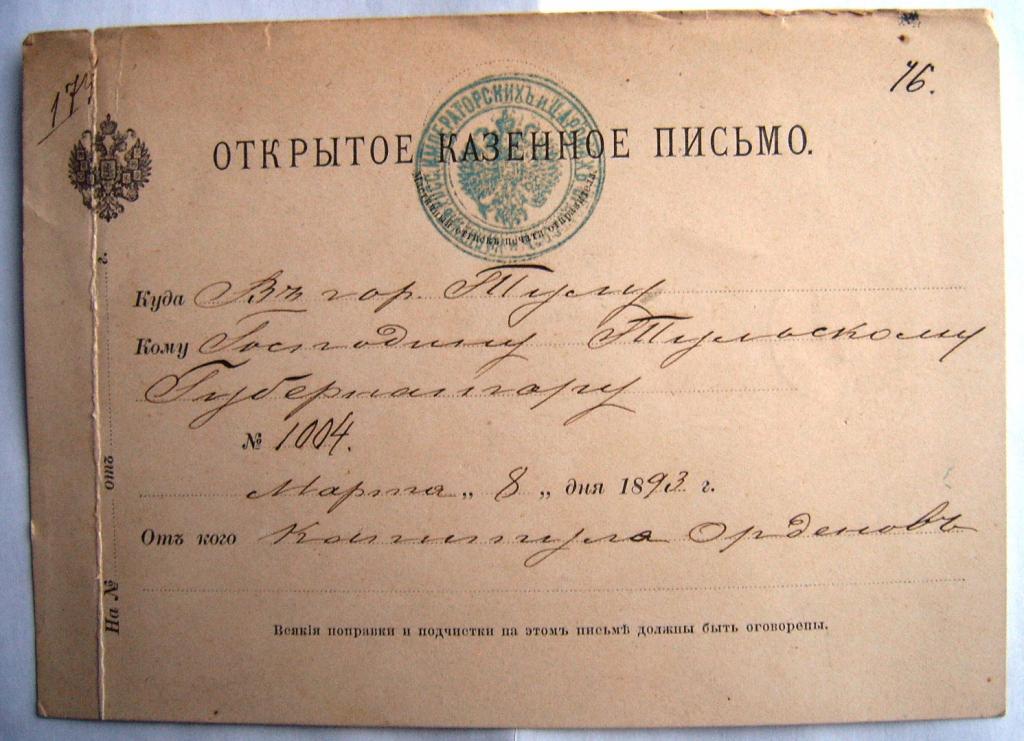 76.
ОТКРЫТОЕ КАЗЕННОЕ ПИСЬМО.
Куда Въ гор Тулу
Кому Господину Тульскому
Губернатору
№ 1004.
Марта „ 8 „ дня 1893 г.
Отъ кого Капитула Орденовъ
Всякія поправки и подчистки на этомъ письмѣ должны быть оговорены.
На № отъ г.